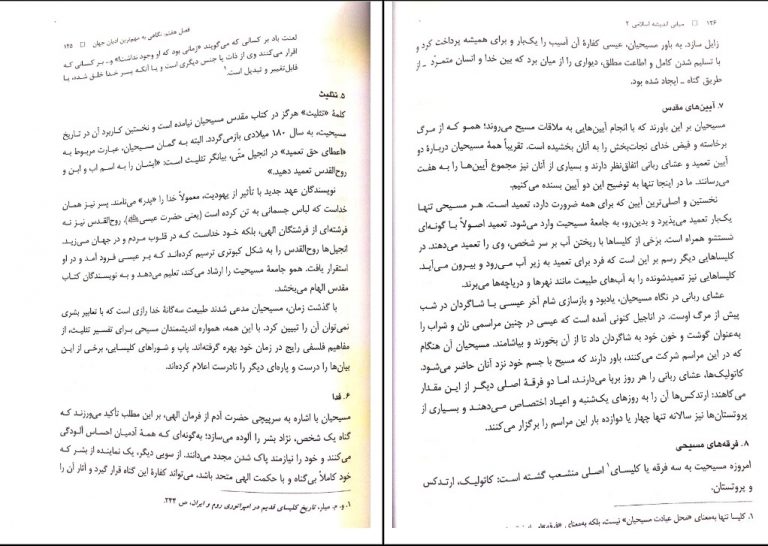 فصل هفتم. نگاهی به مهم‌ترین ادیان جهان □ ۱۲۵
لعنت باد بر کسانی که می‌گویند «زمانی بود که او وجود نداشت» و... بر کسانی که
اقرار می‌کنند وی از ذات یا جنس دیگری است و یا آنکه پسر خدا خلق شده، یا
قابل‌تغییر و تبدیل است.¹
۵. تثلیث
کلمهٔ «تثلیث» هرگز در کتاب مقدس مسیحیان نیامده است و نخستین کاربرد آن در تاریخ
مسیحیت، به سال ۱۸۰ میلادی بازمی‌گردد. البته به گمان مسیحیان، عبارت مربوط به
«اعطای حق تعمید» در انجیل متّی، بیانگر تثلیث است: «ایشان را به اسم اب و ابن و
روح‌القدس تعمید دهید.»
نویسندگان عهد جدید با تأثیر از یهودیت، معمولاً خدا را «پدر» می‌نامند. پسر نیز همان
خداست که لباس جسمانی به تن کرده است (یعنی حضرت عیسی) روح‌القدس نیز نه
فرشته‌ای از فرشتگان الهی، بلکه خود خداست که در قلوب مردم و در جهان می‌زید.
انجیل‌ها روح‌القدس را به شکل کبوتری ترسیم کرده‌اند که بر عیسی فرود آمد و در او
استقرار یافت. همو جامعهٔ مسیحیت را ارشاد می‌کند، تعلیم می‌دهد و به نویسندگان کتاب
مقدس الهام می‌بخشد.
با گذشت زمان، مسیحیان مدعی شدند طبیعت سه‌گانهٔ خدا رازی است که با تعابیر بشری
نمی‌توان آن را تبیین کرد. با این همه، همواره اندیشمندان مسیحی برای تفسیر تثلیث، از
مفاهیم فلسفی رایج در زمان خود بهره گرفته‌اند. پاپ و شوراهای کلیسایی، برخی از این
بیان‌ها را درست و پاره‌ای دیگر را نادرست اعلام کرده‌اند.
۶. فدا
مسیحیان با اشاره به سرپیچی حضرت آدم از فرمان الهی، بر این مطلب تأکید می‌ورزند که
گناه یک شخص، نژاد بشر را آلوده می‌سازد؛ به‌گونه‌ای که همهٔ آدمیان احساس آلودگی
می‌کنند و خود را نیازمند پاک شدن مجدد می‌دانند. از سویی دیگر، یک نماینده از بشر که
خود کاملاً بی‌گناه و با حکمت الهی متحد باشد، می‌تواند کفارهٔ این گناه قرار گیرد و آثار آن را
۱. و. م. میلر، تاریخ کلیسای قدیم در امپراتوری روم و ایران، ص ۲۴۴.
۱۲۶ □ مبانی اندیشه اسلامی ۲
زایل سازد. به باور مسیحیان، عیسی کفارهٔ آن آسیب را یک‌بار و برای همیشه پرداخت کرد و
با تسلیم شدن کامل و اطاعت مطلق، دیواری را از میان برد که بین خدا و انسان متمرّد ـ از
طریق گناه ـ ایجاد شده بود.
۷. آیین‌های مقدس
مسیحیان بر این باورند که با انجام آیین‌هایی به ملاقات مسیح می‌روند؛ همو که از مرگ
برخاسته و فیض خدای نجات‌بخش را به آنان بخشیده است. تقریباً همهٔ مسیحیان دربارهٔ دو
آیین تعمید و عشای ربانی اتفاق‌نظر دارند و بسیاری از آنان نیز مجموع آیین‌ها را به هفت
می‌رسانند. ما در اینجا تنها به توضیح این دو آیین بسنده می‌کنیم.
نخستین و اصلی‌ترین آیین که برای همه ضرورت دارد، تعمید است. هر مسیحی تنها
یک‌بار تعمید می‌پذیرد و بدین‌رو، به جامعهٔ مسیحیت وارد می‌شود. تعمید اصولاً با گونه‌ای
شستشو همراه است. برخی از کلیساها با ریختن آب بر سر شخص، وی را تعمید می‌دهند. در
کلیساهایی دیگر رسم بر این است که فرد برای تعمید به زیر آب می‌رود و بیرون می‌آید.
کلیساهایی نیز تعمیدشونده را به آب‌های طبیعت مانند نهرها و دریاچه‌ها می‌برند.
عشای ربانی در نگاه مسیحیان، یادبود و بازسازی شام آخر عیسی با شاگردان در شب
پیش از مرگ اوست. در اناجیل کنونی آمده است که عیسی در چنین مراسمی نان و شراب را
به‌عنوان گوشت و خون خود به شاگردان داد تا از آن بخورند و بیاشامند. مسیحیان آن هنگام
که در این مراسم شرکت می‌کنند، باور دارند که مسیح با جسم خود نزد آنان حاضر می‌شود.
کاتولیک‌ها، عشای ربانی را هر روز برپا می‌دارند، اما دو فرقهٔ اصلی دیگر از این مقدار
می‌کاهند: ارتدکس‌ها آن را به روزهای یک‌شنبه و اعیاد اختصاص می‌دهند و بسیاری از
پروتستان‌ها نیز سالانه تنها چهار یا دوازده بار این مراسم را برگزار می‌کنند.
۸. فرقه‌های مسیحی
امروزه مسیحیت به سه فرقه یا کلیسای¹ اصلی منشعب گشته است: کاتولیک، ارتدکس
و پروتستان.
۱. کلیسا تنها به‌معنای «محل عبادت مسیحیان» نیست، بلکه به‌معنای «فرقه»